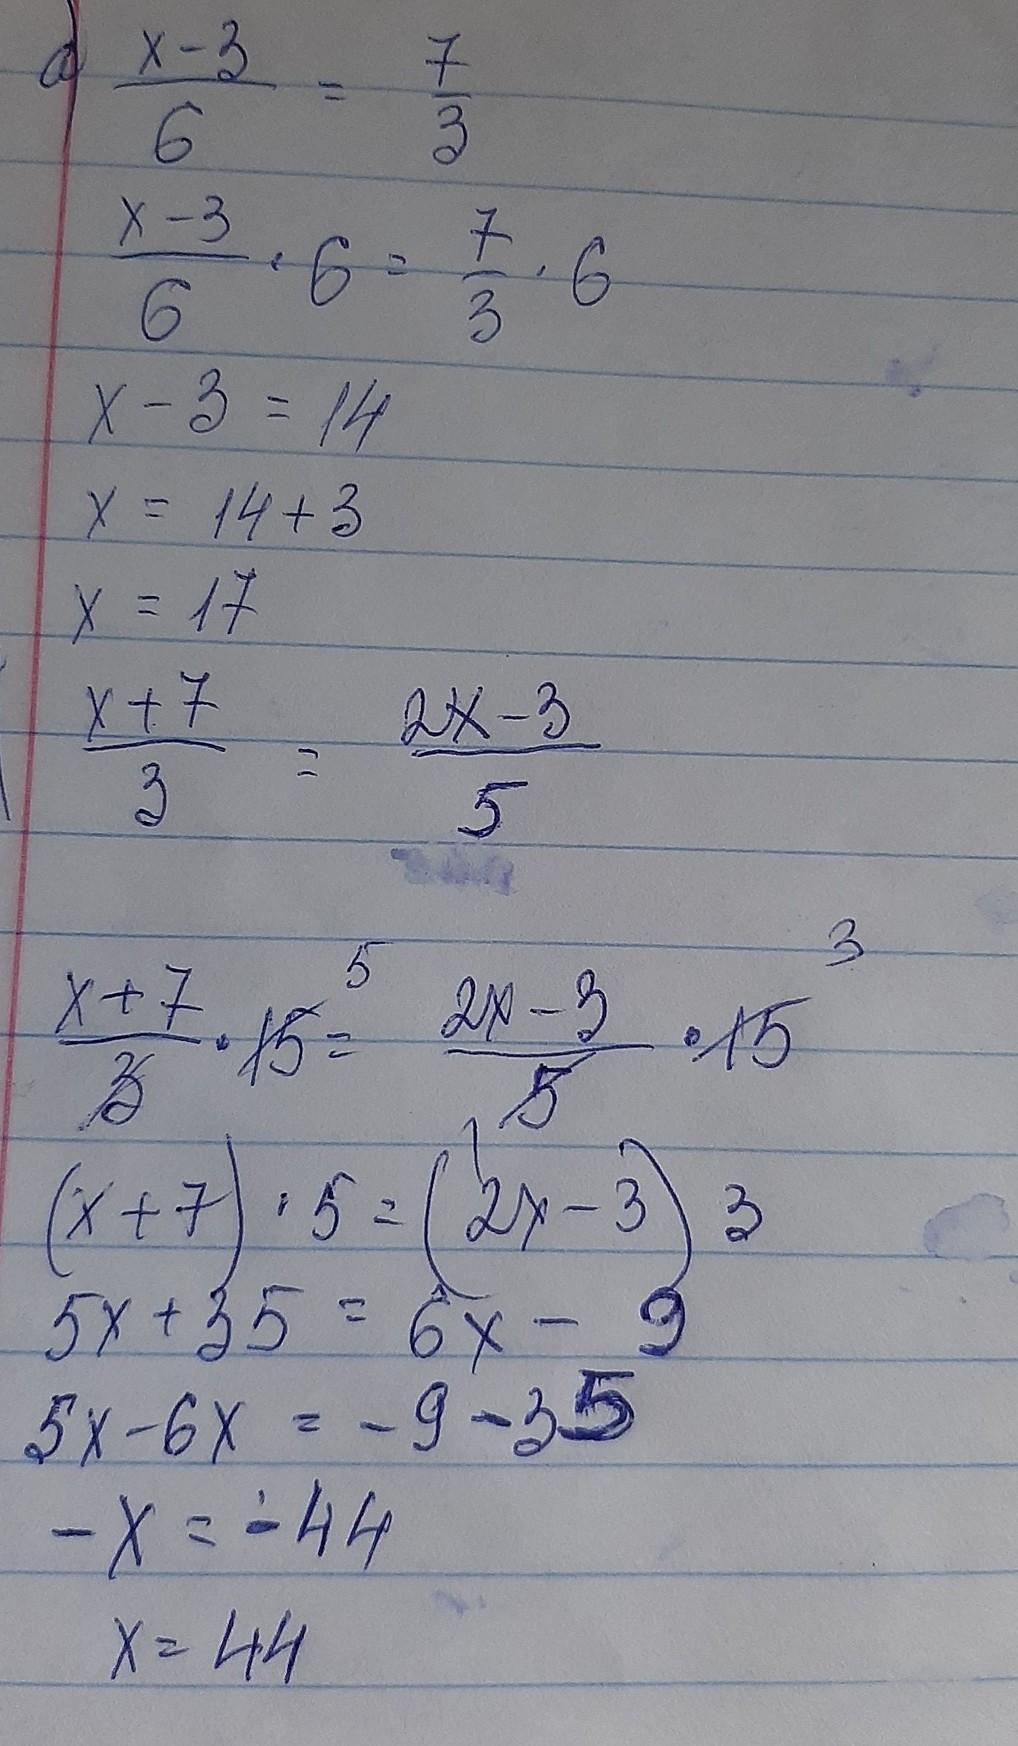 a) x-3/6 = 7/3
x-3/6 · 6 = 7/3 · 6
x - 3 = 14
x = 14 + 3
x = 17
x+7/3 = 2x-3/5
x+7/3 · 15 5 = 2x-3/5 · 15 3
(x+7) · 5 = (2x-3) 3
5x + 35 = 6x - 9
5x - 6x = -9 - 35
-x = -44
x = 44